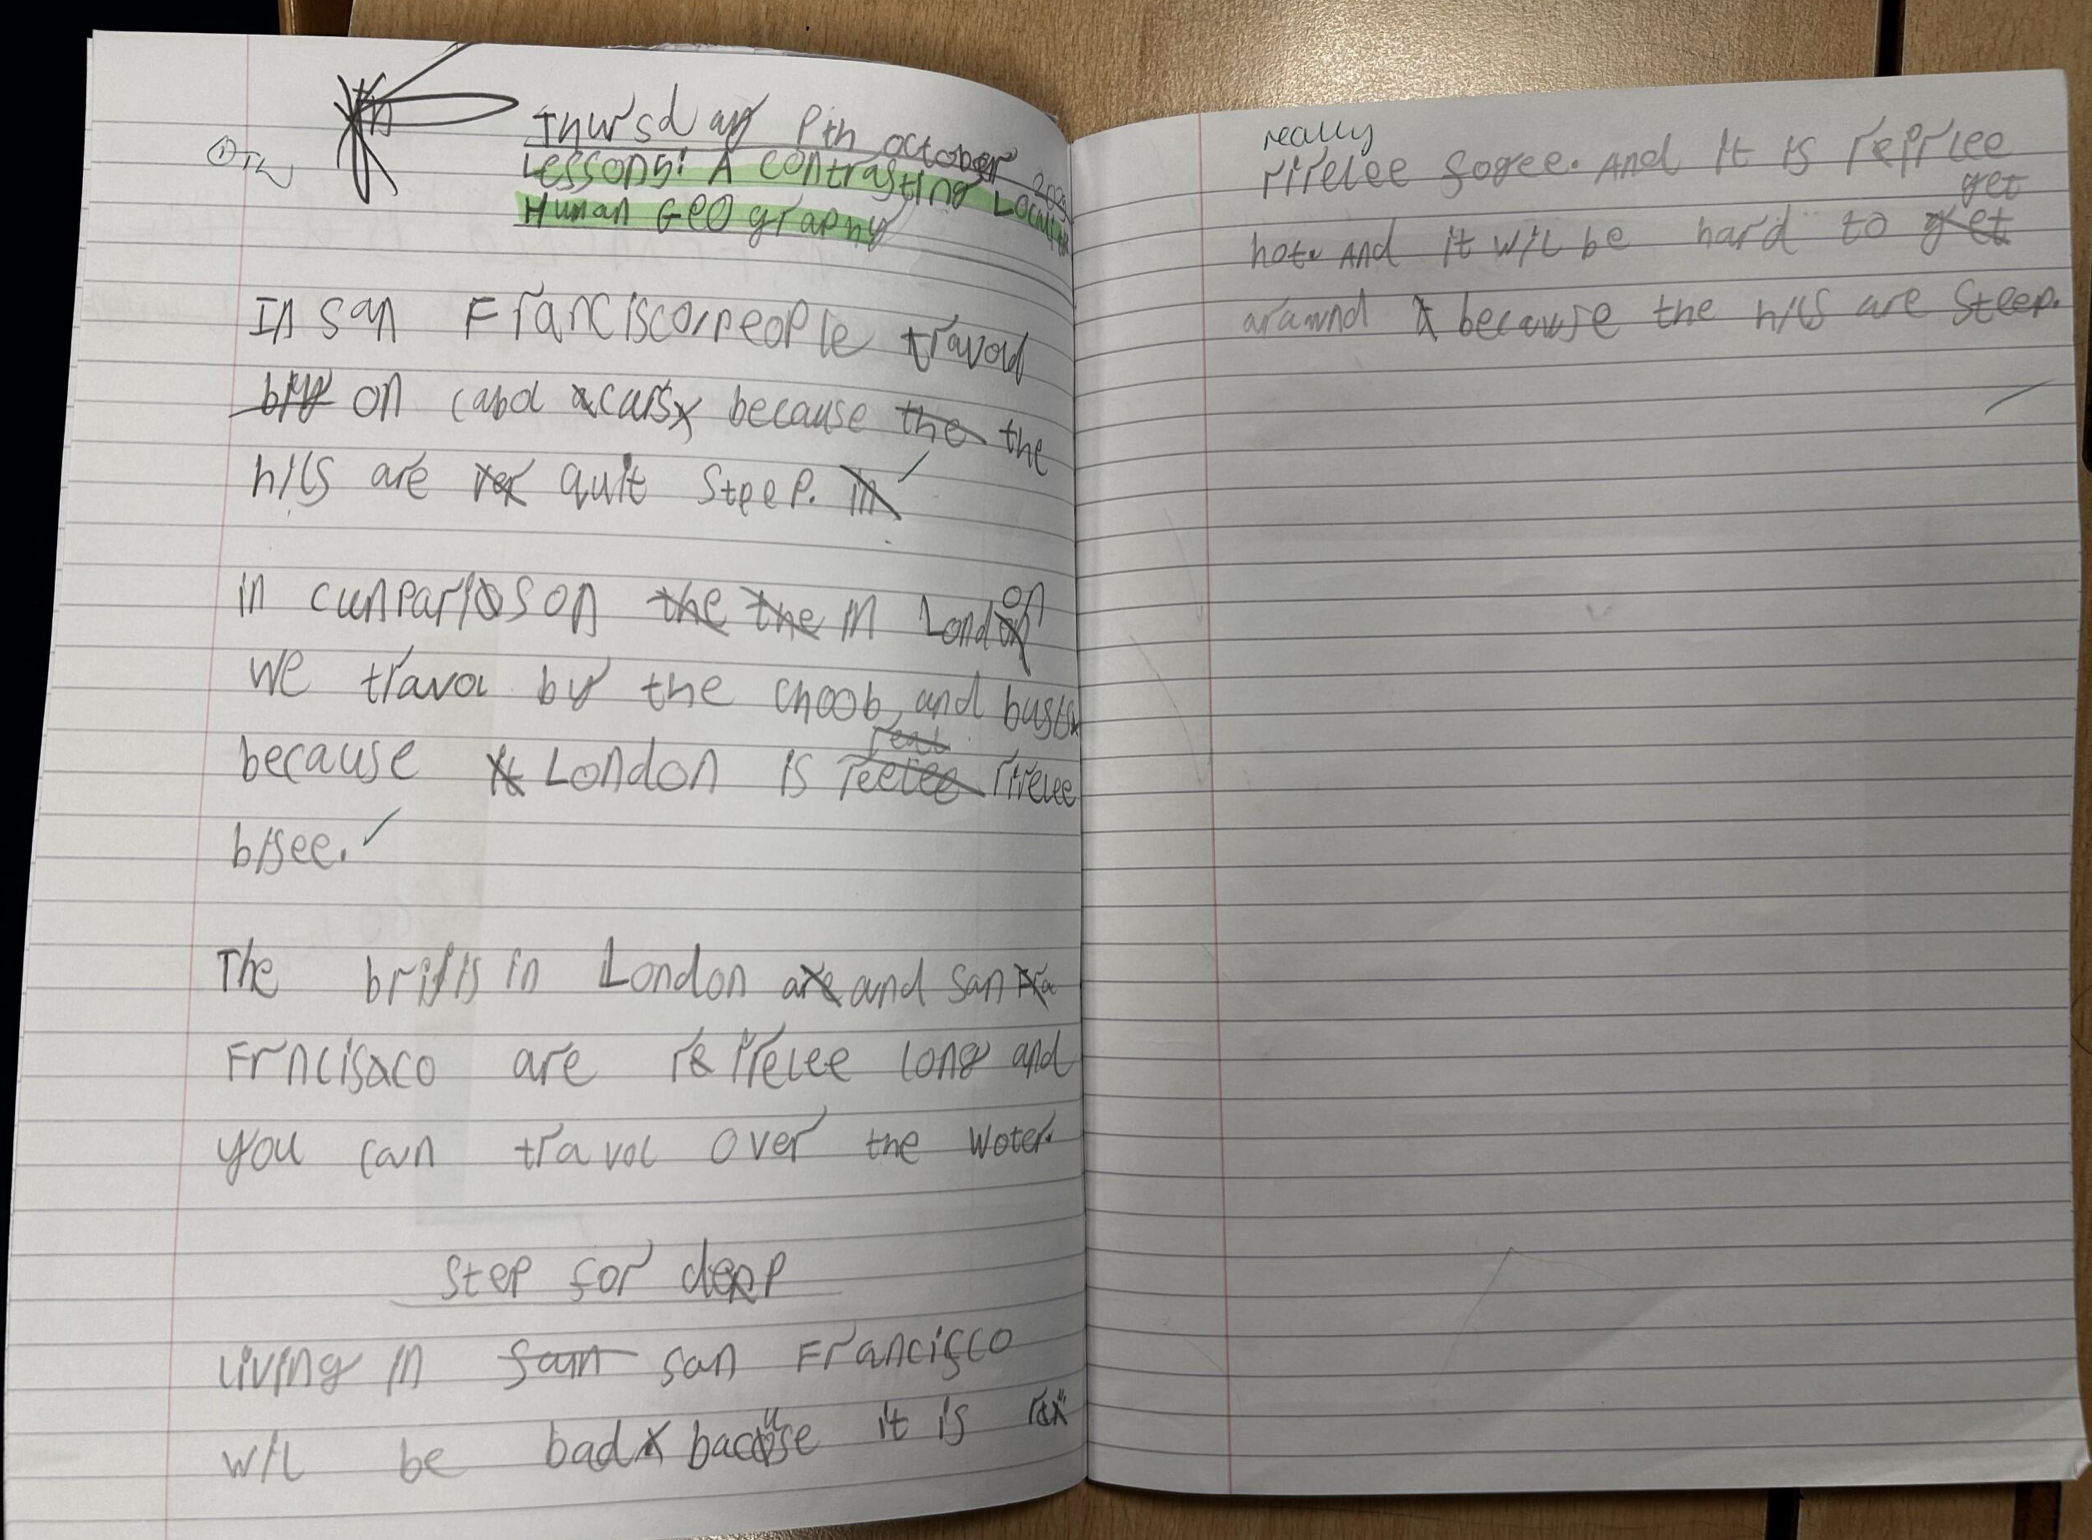 Thursday 9th october
Lesson5: A contrasting
Human Geography
In san Francisco, people travol
on cabol cars because the the
hils are quit steep.
in cunparison the the in London
we travol by the choob, and buses
because London is rirelee
bisee.
The brijis in London and san
Frncisco are rirelee long and
you can travol over the woter.
Step for deep
Living in san san Francisco
wil be bad bacuse it is
really
rirelee fogee. And it is reirlee
get
hot. And it wil be hard to get
arawnd because the hils are steep.